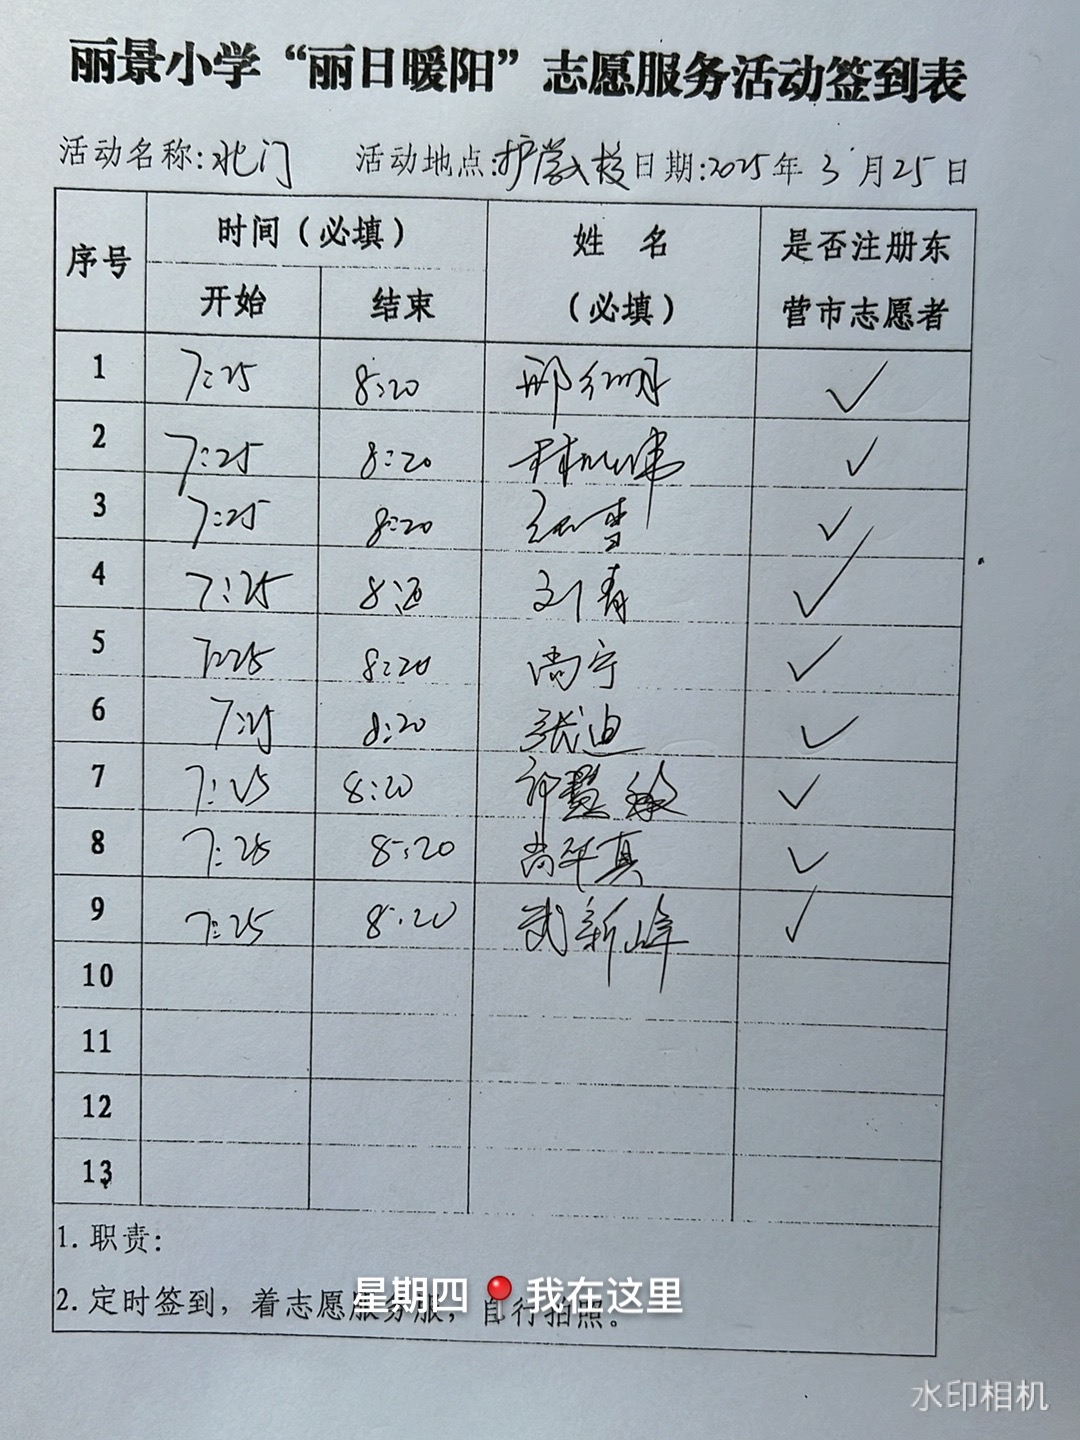 丽景小学“丽日暖阳”志愿服务活动签到表
活动名称:北门 活动地点:护学入校 日期:2025年3月25日
序号 时间（必填） 姓 名（必填） 是否注册东营市志愿者
开始 结束
1 7:25 8:20 邢红明 ✓
2 7:25 8:20 ✓
3 7:25 8:20 ✓
4 7:25 8:20 刘青 ✓
5 7:25 8:20 尚宁 ✓
6 7:25 8:20 张迪 ✓
7 7:25 8:20 ✓
8 7:25 8:20 尚平真 ✓
9 7:25 8:20 武新峰 ✓
10
11
12
13
1.职责:
2.定时签到，着志愿服务服，自行拍照。
星期四 📍我在这里
水印相机